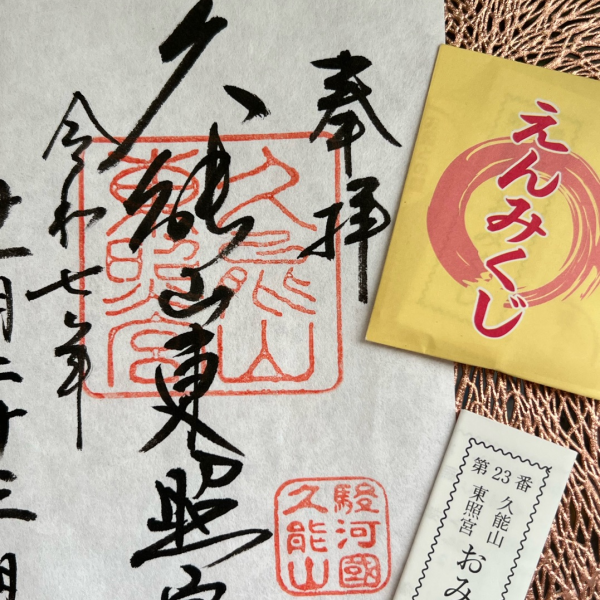 奉拝
久能山東照宮
久能山
東照宮
駿河國
久能山
令和七年
十一月二十三日
えんみくじ
第23番
久能山
東照宮
おみ